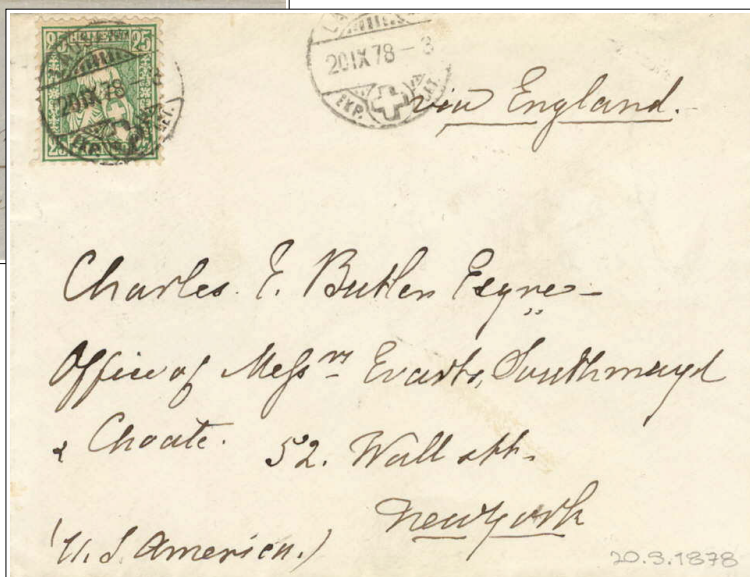 25 25
20 IX 78 - 8
EXP. LET.
via England.
Charles E. Butler Esqre
Office of Messrs Evarts, Southmayd
& Choate. 52. Wall str.
New York
(U. S. America.)
20.9.1878